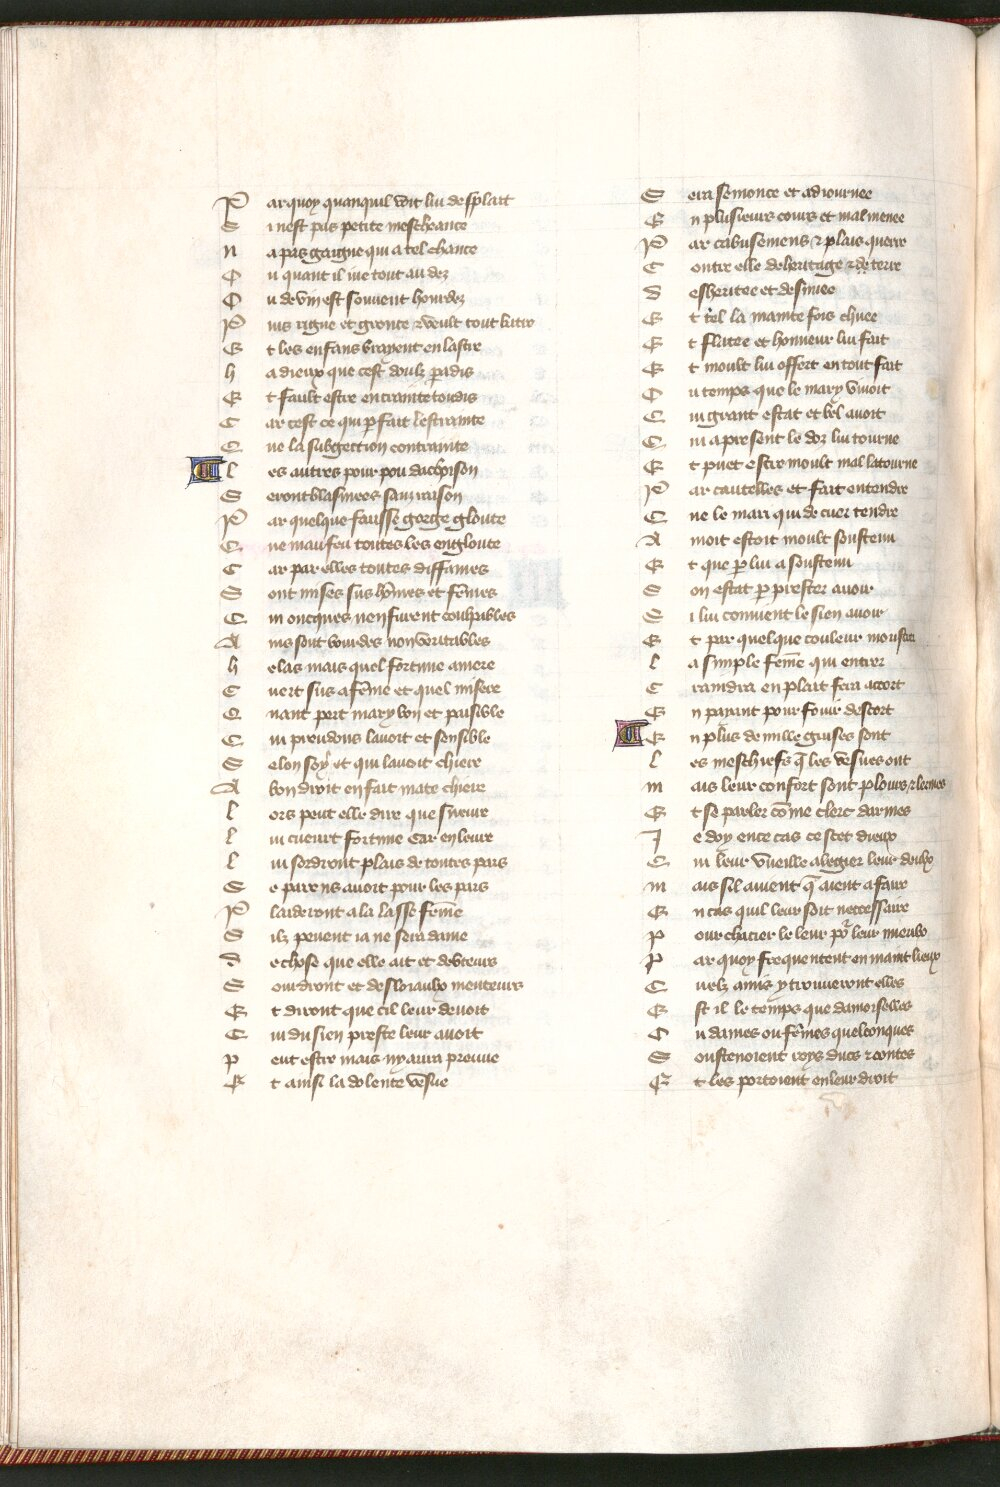 P ar quoy quanquil voit lui desplaist
S i nest pas petite mescheance
N a pas gaigne qui a tel chance
O u quant il iue tout au dez
O u de vin est souuent hourdez
P uis rigne et gronce et veult tout batre
E t les enfans brayent en lastre
h a dieux que cest doulz paradis
E t fault estre en crainte toudis
C ar cest ce qui pfait lestrainte
Q ue la subgection contrainte
L es autres pour pou dachoison
S eront blasmees sanz raison
P ar quelque fausse gorge gloute
Q ue mau feu toutes les engloute
C ar par elles toutes diffames
S ont mises sus homes et femes
Q ui oncques nen furent coulpables
A ins sont bourdes non veritables
h elas mais quel fortune amere
C uert sus a feme et quel misere
Q uant pert mary bon et paisible
Q ui preudons lauoit et sensible
S elon soy et qui lauoit chiere
A bon droit en fait mate chiere
L ors peut elle dire que sueur
L ui cueurt fortune Car en leure
L ui sordront plais de toutes pars
S e parens auoit pour les pars
P laideront a la lasse feme
S ilz peuent ia ne sera dame
D e chose que elle ait et debteurs
S ourdront et desloiaulx menteurs
E t diront que cil leur deuoit
Q ui du sien preste leur auoit
P eut estre mais ny aura preuue
E t ainsi la dolente vefue
S era semonce et adiournee
E n plusieurs cours et mal menee
P ar cabusemens et plais querre
C ontre elle deheritage et de terre
D esheritee et desnuee
E t tel la mainte fois chuee
E t flatee et honneur lui fait
E t moult lui offert en tout fait
O u temps que le mary viuoit
Q ui grant estat et bel auoit
Q ui a present le doz lui tourne
E t puet estre moult mal latourne
P ar cautelles et fait entendre
Q ue le mari qui de cuer tendre
A moit estoit moult soustenu
E t que p lui a soustenu
S on estat p prester auoir
S i lui conuient le sien auoir
E t par quelque couleur
L a simple feme qui entrer
C raindra en plait fera accort
E n paiant pour fouir descort
E n plus de mille guises sont
L es meschiefs q les vefues ont
M ais leur confort sont plours et lermes
E t se parler come clerc darmes
J e doy en ce cas ce scet dieux
Q ui leur vueille alegier leur deulx
M ais sil auient q aient a faire
E n cas quil leur soit neccessaire
P our chacier le leur po leur mieulx
P ar quoy frequentent en maint lieux
Q uelz amis y trouueront elles
E st il le temps que damoiselles
O u dames ou femes quelconques
S oustenoient roys ducs et contes
E t les portoient en leur droit